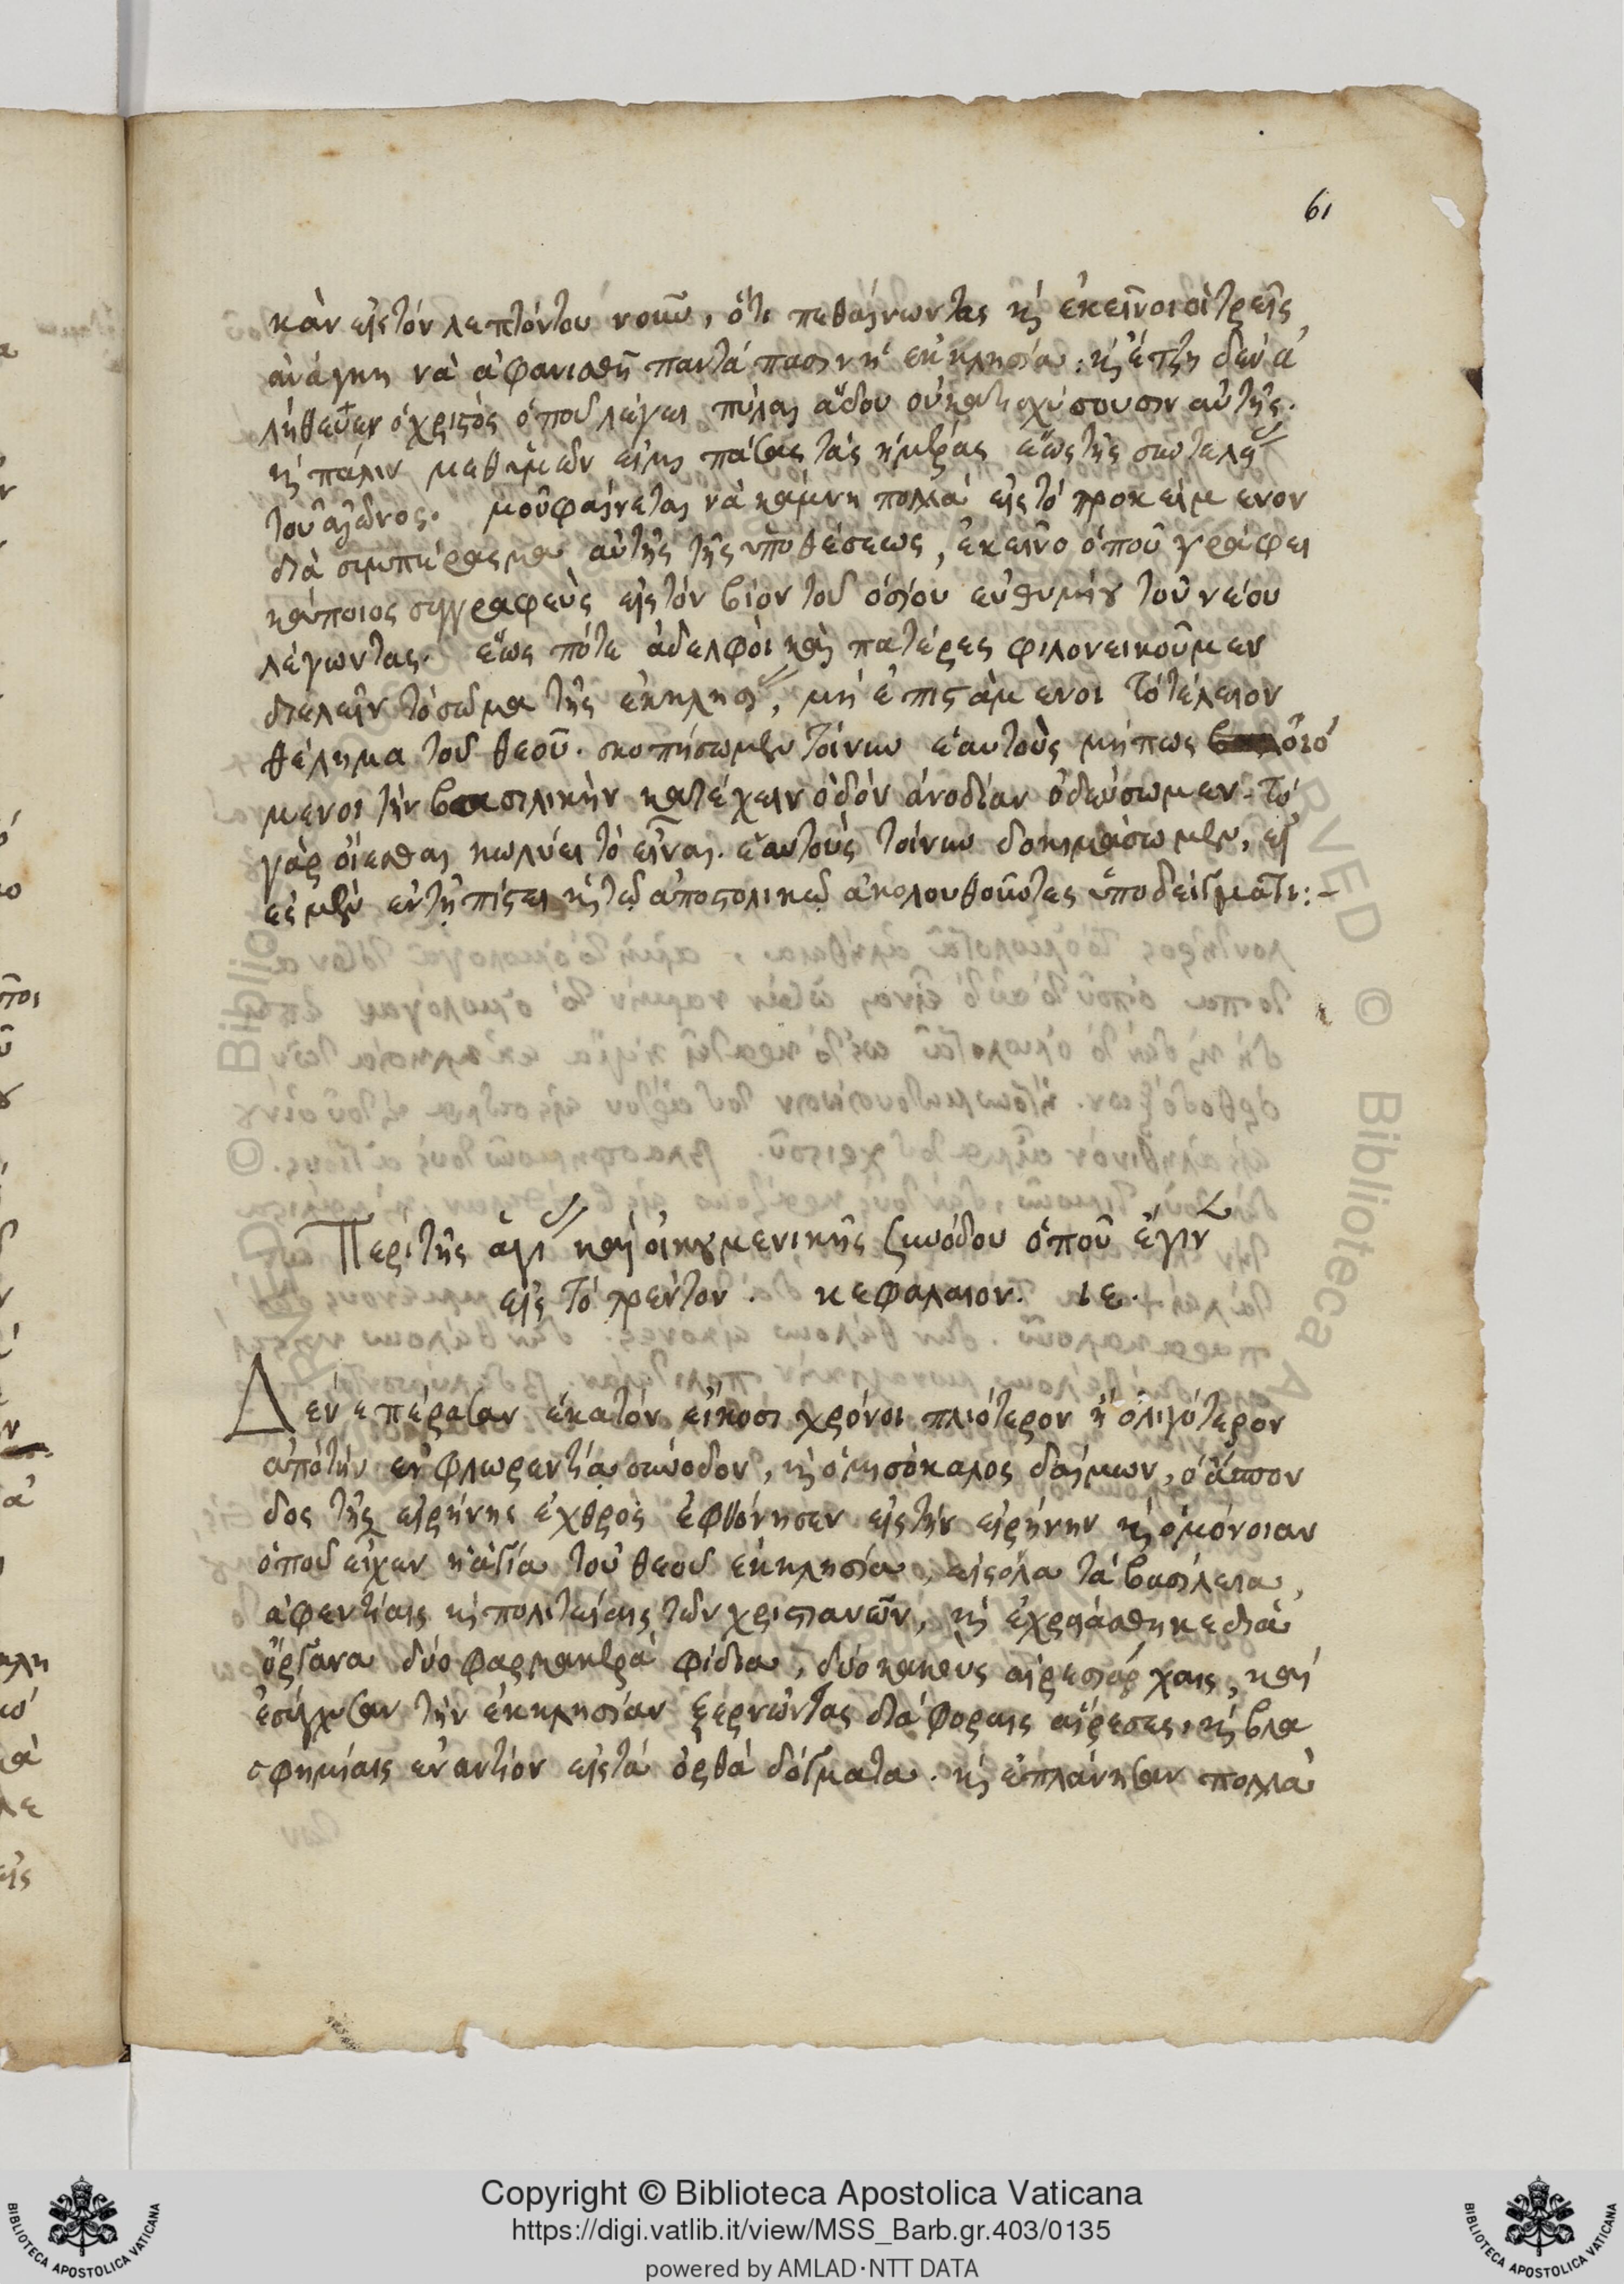 61
κἀν εἰς τόν λεπτόν του νοῦν, ὅτι πεθαίνωντας κ̀ ἐκεῖνοι οἱ τρεῖς
ἀνάγκη νὰ ἀφανισθῆ παντάπασιν ἡ ἐκκλησία· κ̀ ἔτζη δεν ἀ
λήθευεν ὁ χριστὸς ὁποῦ λέγει πύλαι ἅδου οὐ κατισχύσουσιν αὐτῆς.
κ̀ πάλιν μεθ' ὑμῶν εἰμι πάσας τὰς ἡμέρας ἕως τῆς συντελεί
τοῦ αἰῶνος. μοῦ φαίνεται νὰ κάμνη πολλὰ εἰς τό προκείμενον
διὰ συμπέρασμα αὐτῆς τῆς ὑποθέσεως, ἐκεῖνο ὁποῦ γράφει
κάποιος συγγραφεὺς εἰς τόν βίον τοῦ ὁσίου εὐθυμίου τοῦ νέου
λέγωντας. ἕως πότε ἀδελφοὶ καὶ πατέρες φιλονεικοῦμεν
διελεῖν τὸ σῶμα τῆς ἐκκλησί, μή ἐπιστάμενοι τό τέλειον
θέλημα τοῦ θεοῦ. σκοπήσωμεν τοίνυν ἑαυτοὺς μήπως οἰό
μενοι τήν βασιλικὴν κατέχειν ὁδόν ἀνοδίαν ὁδεύσωμεν. τό
γὰρ οἴεσθαι κωλύει τό εἶναι. ἑαυτοὺς τοίνυν δοκιμάσωμεν, εἰ
ἐσμὲν ἐν τῇ πίστει κ̀ τῷ ἀποστολικῷ ἀκολουθοῦντες ὑποδείγματι:-
Περὶ τῆς ἁγί καὶ οἰκουμενικῆς συνόδου ὁποῦ ἔγιν
εἰς τό τρέντον. κεφάλαιον. ιε.
Δέν ἐπέρασαν ἑκατόν εἴκοσι χρόνοι πλιότερον ἢ ὀλιγότερον
ἀπό τήν ἐν φλωρεντίᾳ σύνοδον, κ̀ ὁ μισόκαλος δαίμων, ὁ ἄσπον
δος τῆς εἰρήνης ἐχθρὸς ἐφθόνησεν εἰς τήν εἰρήνην κ̀ ὁμόνοιαν
ὁποῦ εἶχεν ἡ ἁγία τοῦ θεοῦ ἐκκλησία, εἰς ὅλα τά βασίλεια,
ἀφεντίαις κ̀ πολιτείαις τῶν χριστιανῶν, κ̀ ἐχρειάσθηκε διὰ
ὄργανα δύο φαρμακερὰ φίδια, δύο κακοὺς αἱρεσιάρχαις, καὶ
ἐσύγχυσαν τήν ἐκκλησίαν ξερνῶντας διάφοραις αἵρεσες, κ̀ βλα
σφημίαις ἐναντίον εἰς τά ὀρθά δόγματα. κ̀ ἐπλάνησαν πολλὰ
Copyright © Biblioteca Apostolica Vaticana
https://digi.vatlib.it/view/MSS_Barb.gr.403/0135
powered by AMLAD·NTT DATA